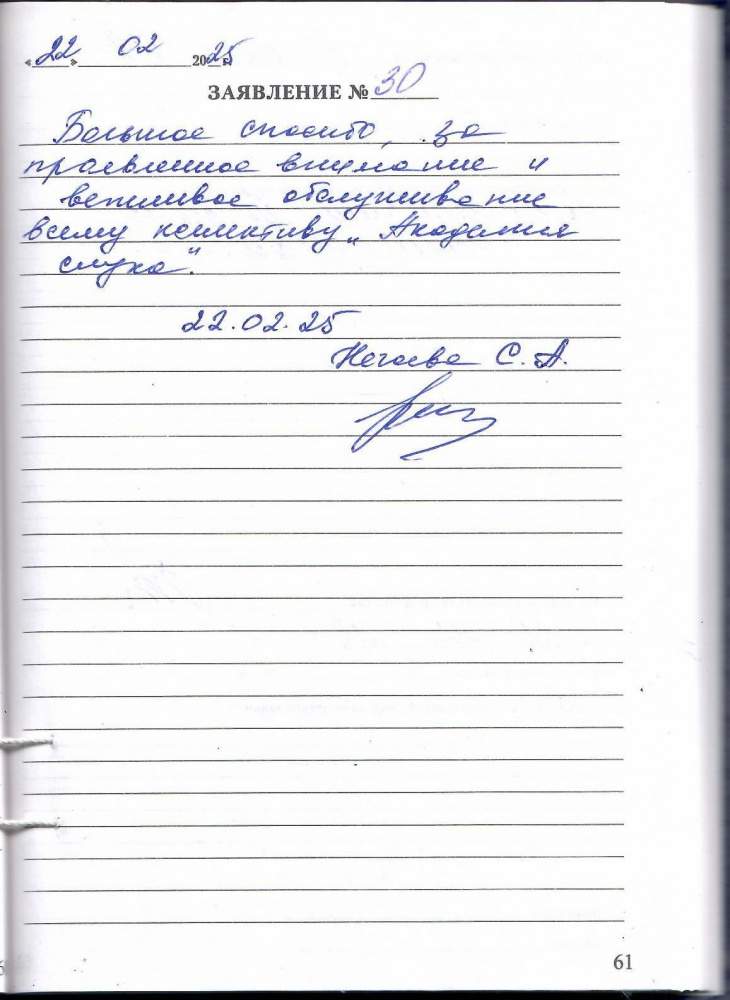 «22» 02 2025 г.
ЗАЯВЛЕНИЕ № 30
Большое спасибо, за
проевленное внимание и
вежливое обслуживание
всему коллективу „Академия
слуха".
22.02.25
Негаева С. А.
61